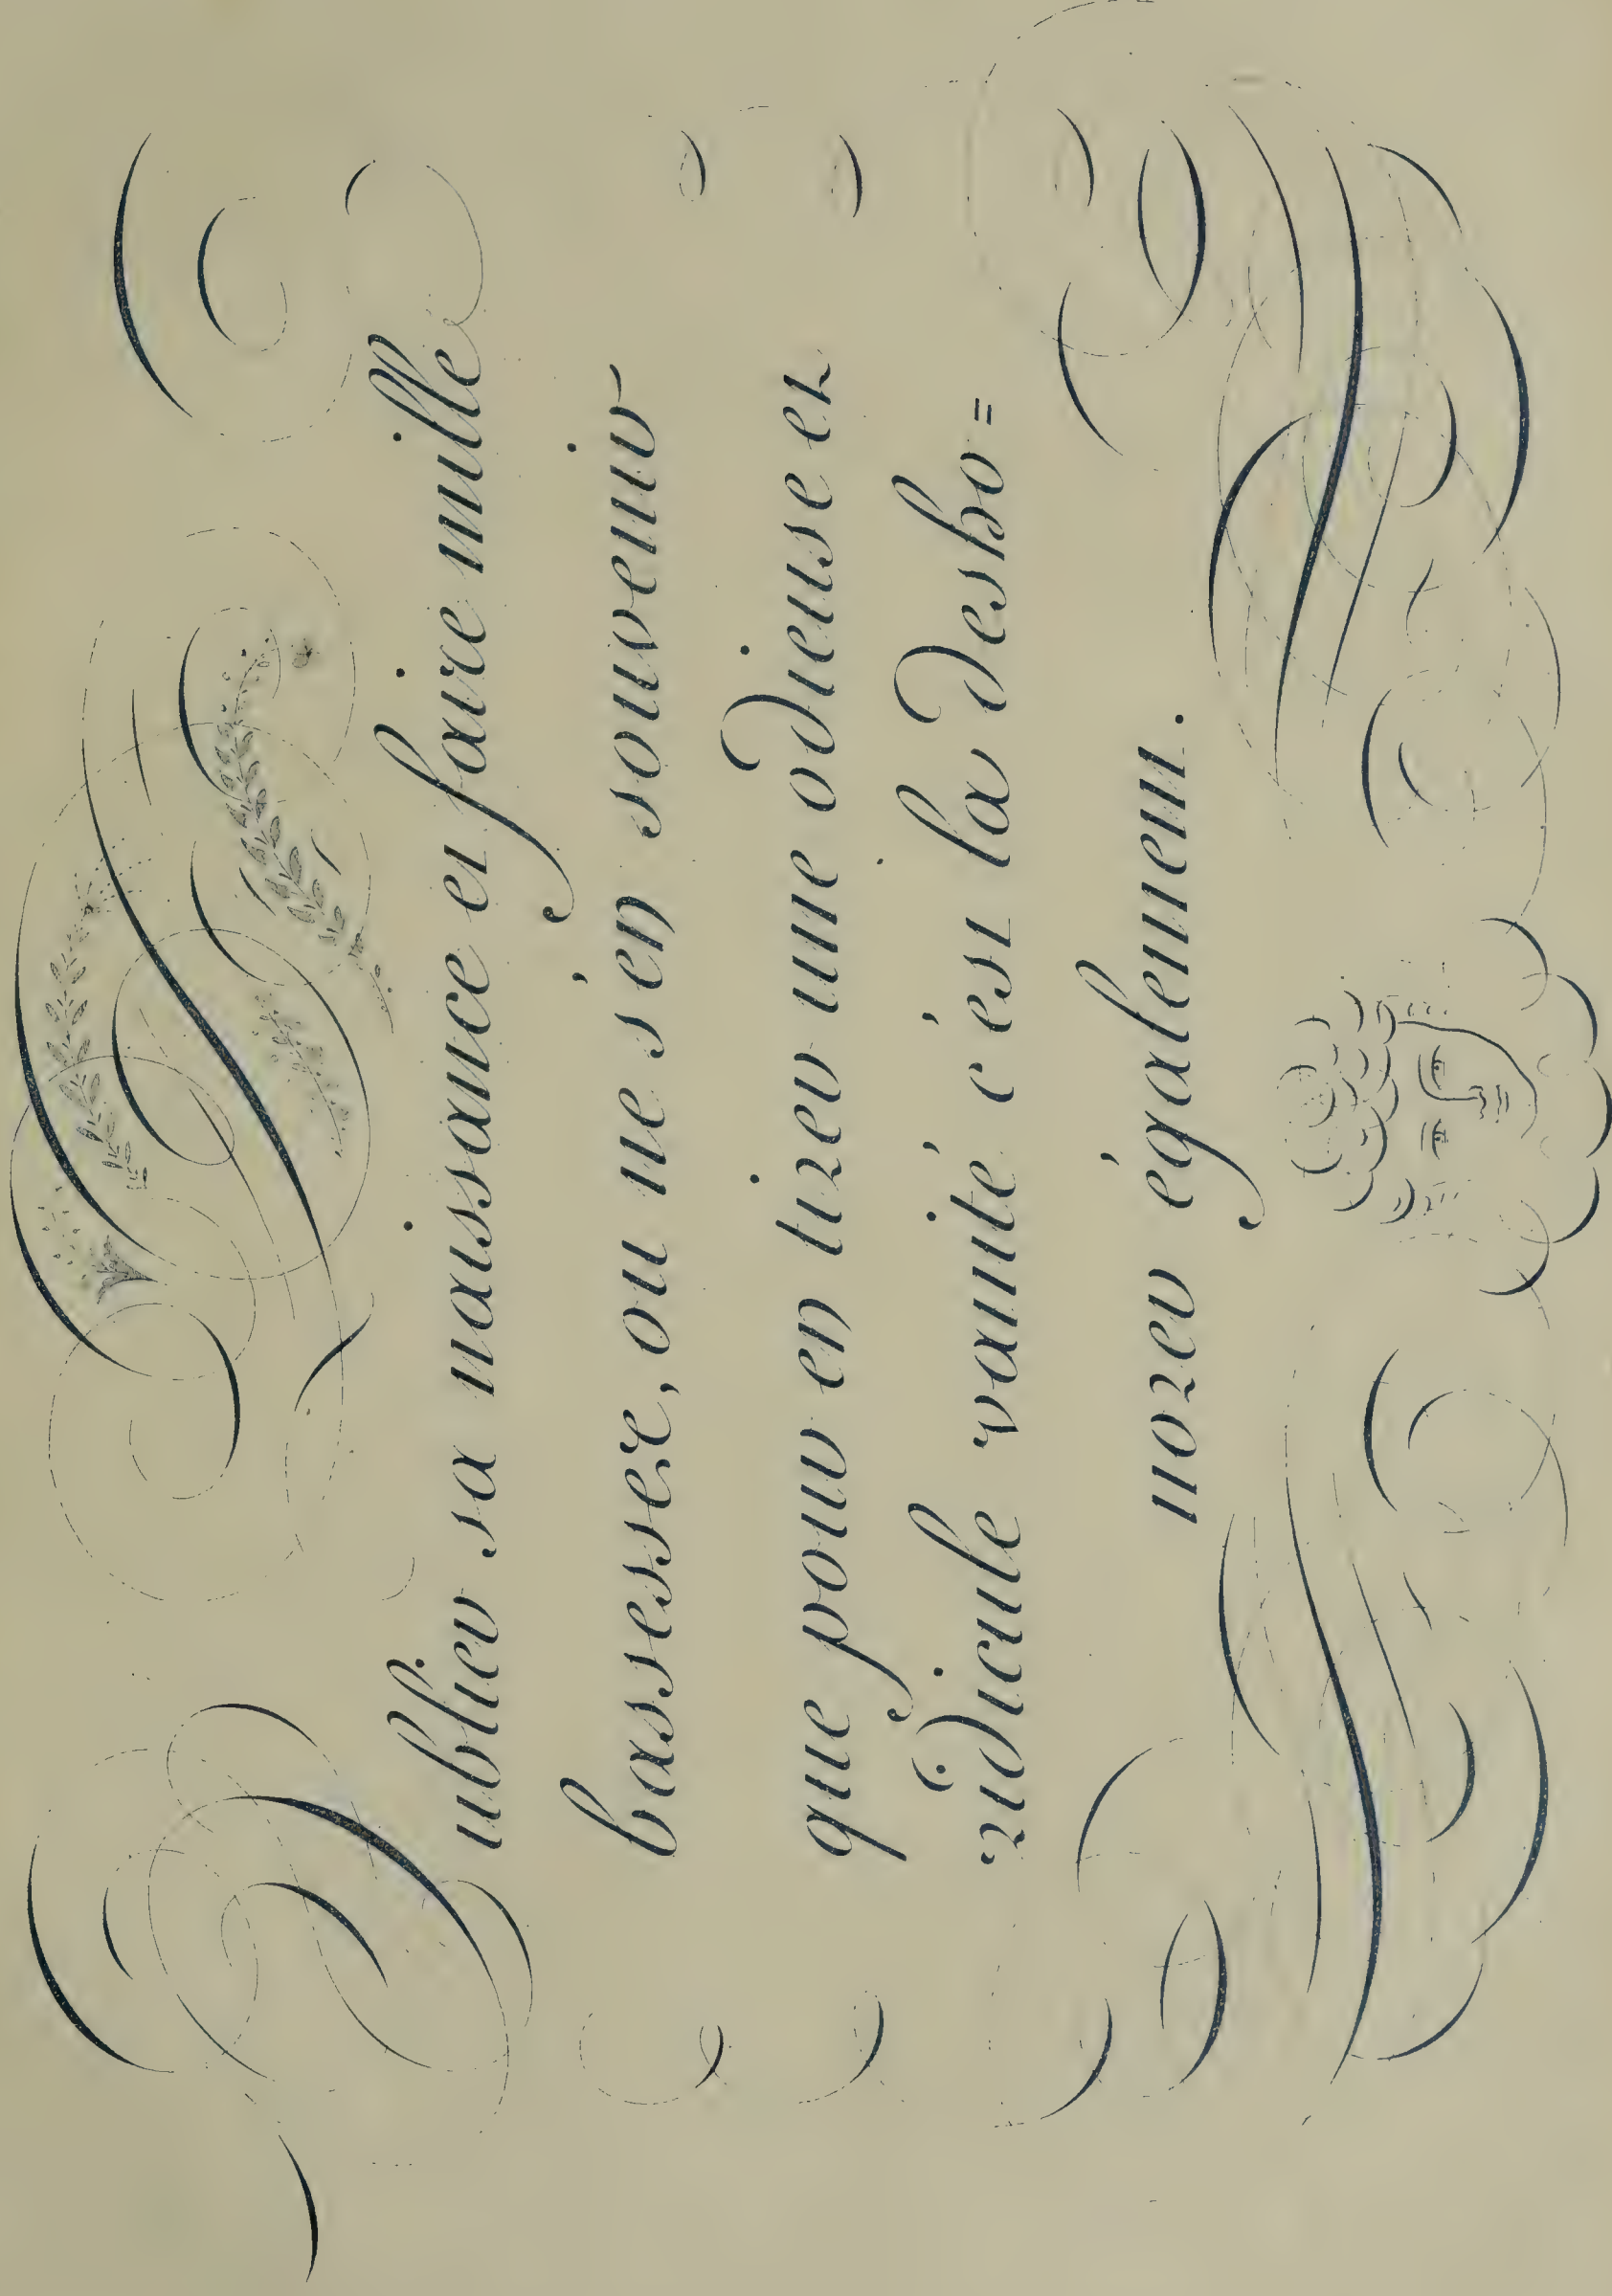 Oublier sa naissance et faire mille
bassesses, ou ne s'en souvenir
que pour en tirer une odieuse et
ridicule vanité c'est la desho=
norer également.